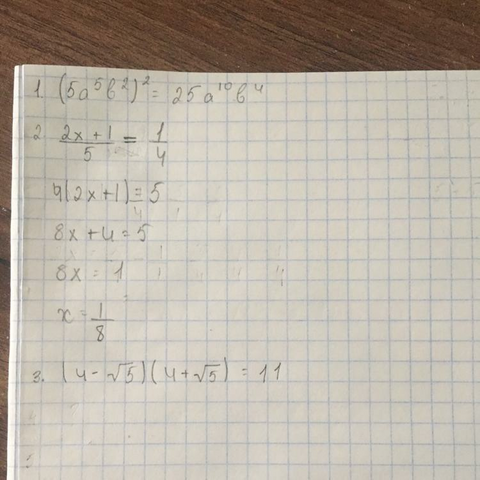 1. (5a⁵b²)² = 25a¹⁰b⁴
2. (2x+1)/5 = 1/4
4(2x+1) = 5
8x+4=5
8x = 1
x = 1/8
3. (4-√5)(4+√5) = 11